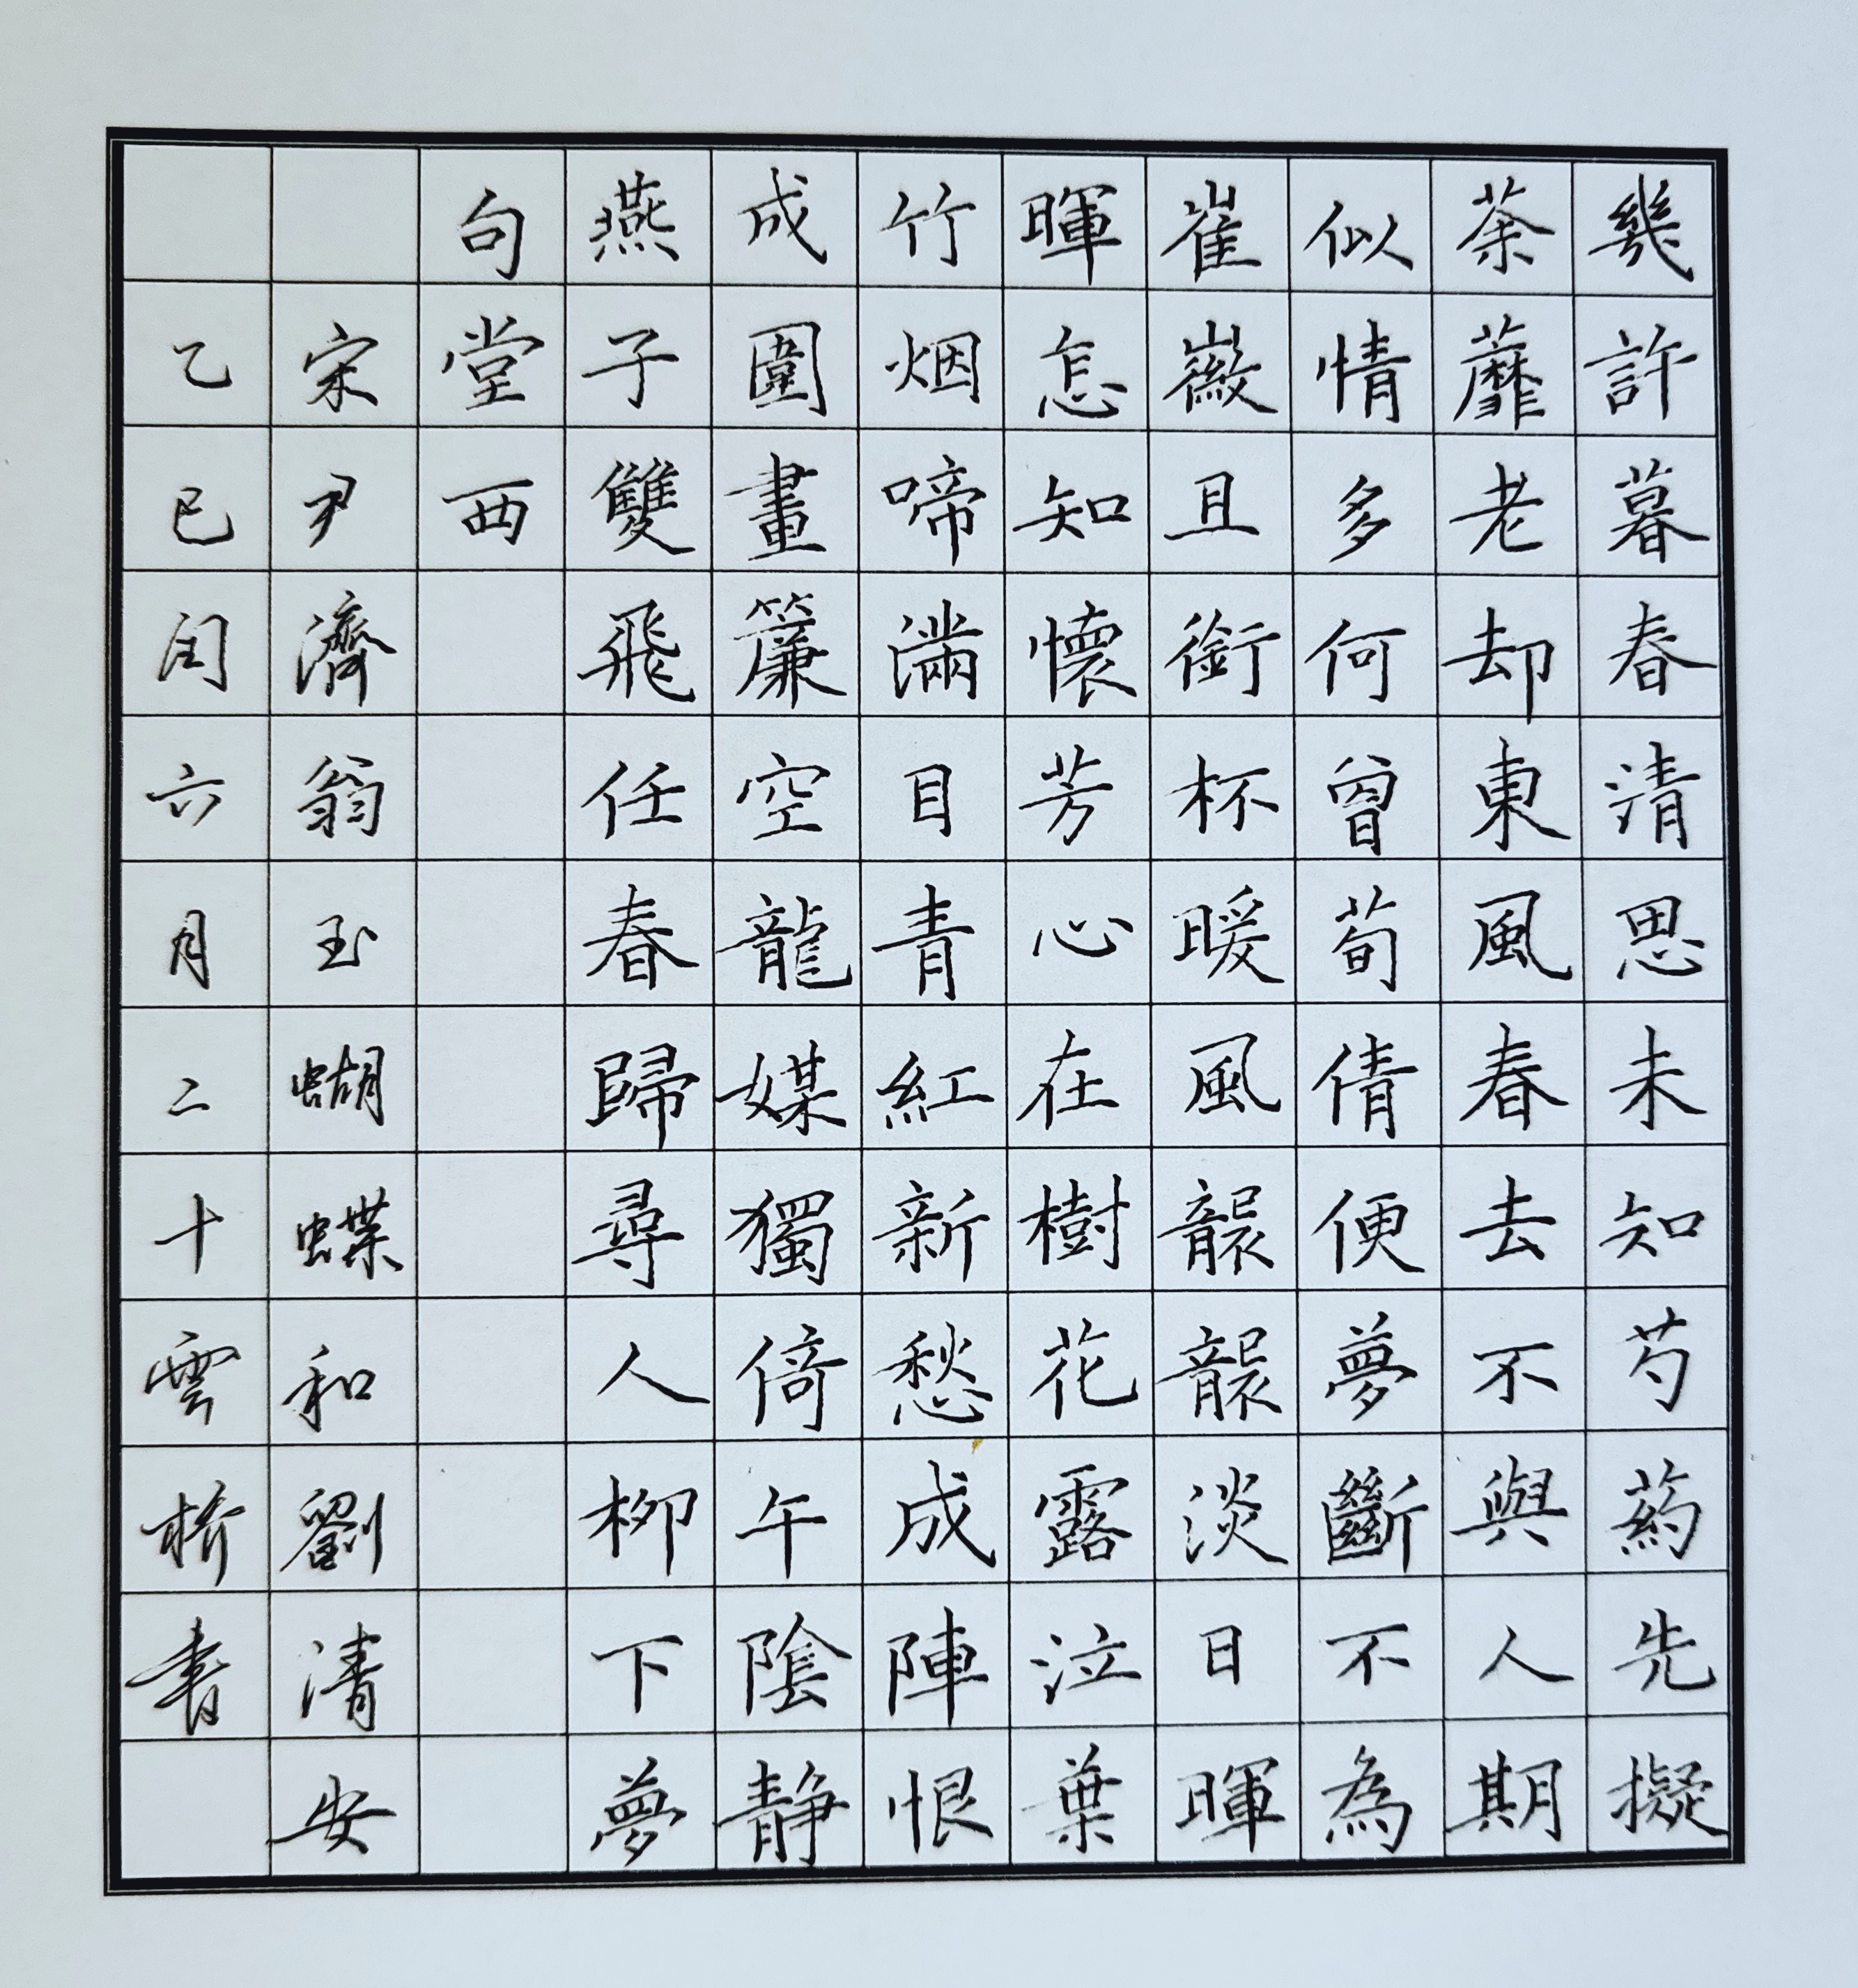 幾許暮春清思未知芍葯先擬
荼蘼老却東風春去不與人期
似情多何曾荀倩便夢斷不為
崔徽且銜杯暖風襲襲淡日暉
暉怎知懷芳心在樹花露泣葉
竹烟啼滿目青紅新愁成陣恨
成圍畫簾空龍媒獨倚午陰静
燕子雙飛任春歸尋人柳下夢
句堂西
宋尹濟翁玉蝴蝶和劉清安
乙巳闰六月二十雲橋書